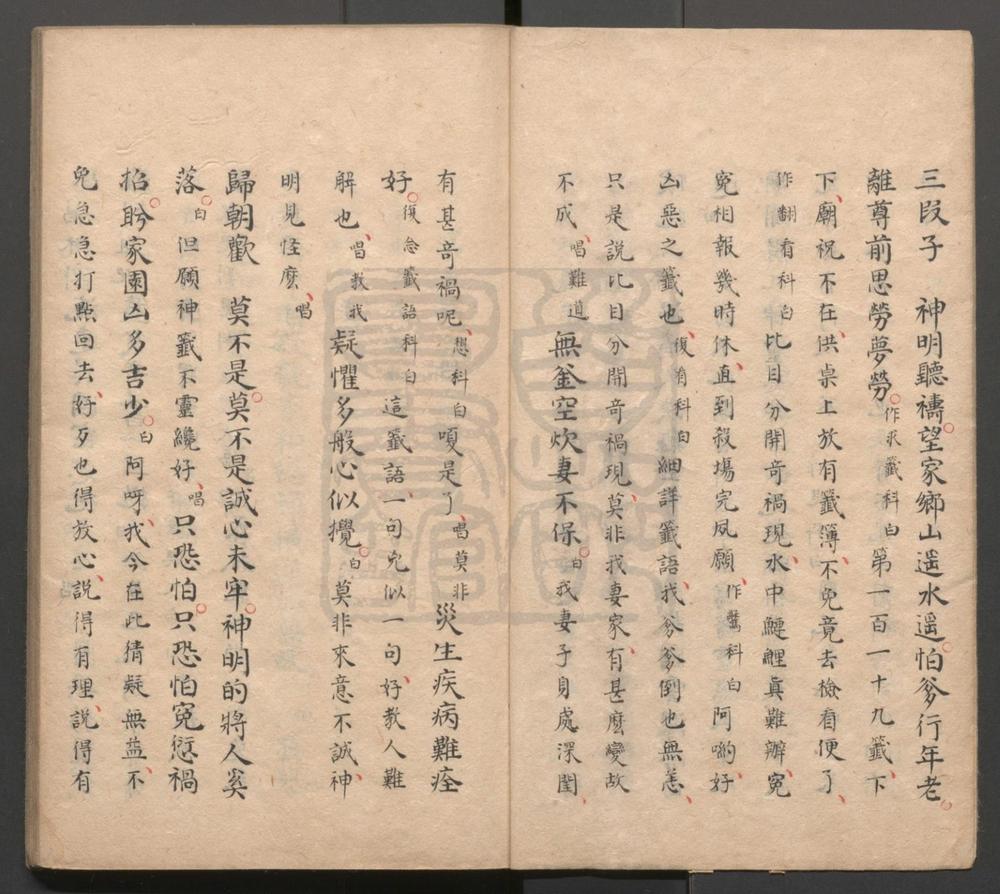 三段子　神明聽禱望家鄉山遥水遥怕爹行年老
離尊前思勞夢勞作求籤科白第一百一十九籤下
下廟祝不在供桌上放有籤簿不免竟去檢看便了
作翻看科白比目分開奇禍現水中鰱鯉真難辦寃
寃相報幾時休直到殺塲完夙願作驚科白阿喲好
凶惡之籤也復看科白細詳籤語我爹爹倒也無恙
只是說比目分開奇禍現莫非我妻家有甚麽變故
不成唱難道無釜空炊妻不保白我妻子身處深閨
有甚奇禍呢想科白嗄是了唱莫非災生疾病難痊
好復念籤語科白這籤語一句兇似一句好教人難
解也唱教我疑懼多般心似攪白莫非來意不誠神
明見怪麽唱
歸朝歡　莫不是莫不是誠心未牢神明的將人奚
落白但願神籤不靈纔好唱只恐怕只恐怕寃愆禍
招盻家園凶多吉少白阿呀我今在此猜疑無益不
免急急打點回去好歹也得放心說得有理說得有